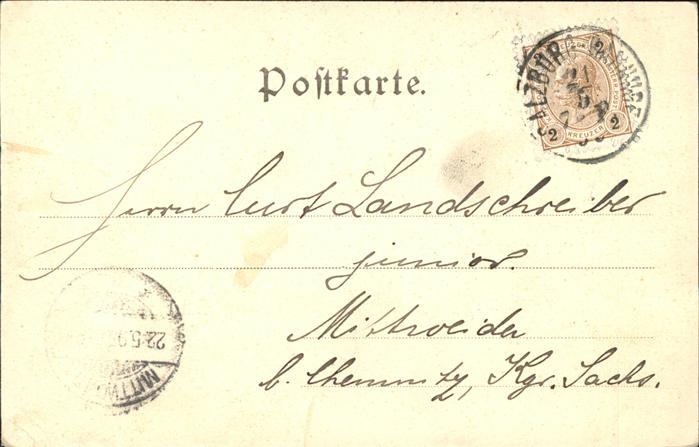 Postkarte.
SALZBURG
21
5
2
2
2
KREUZER
Herrn Curt Landschreiber
junior.
Mittweida
b. Chemnitz, Kgr. Sachs.
22.5.9
MITTW